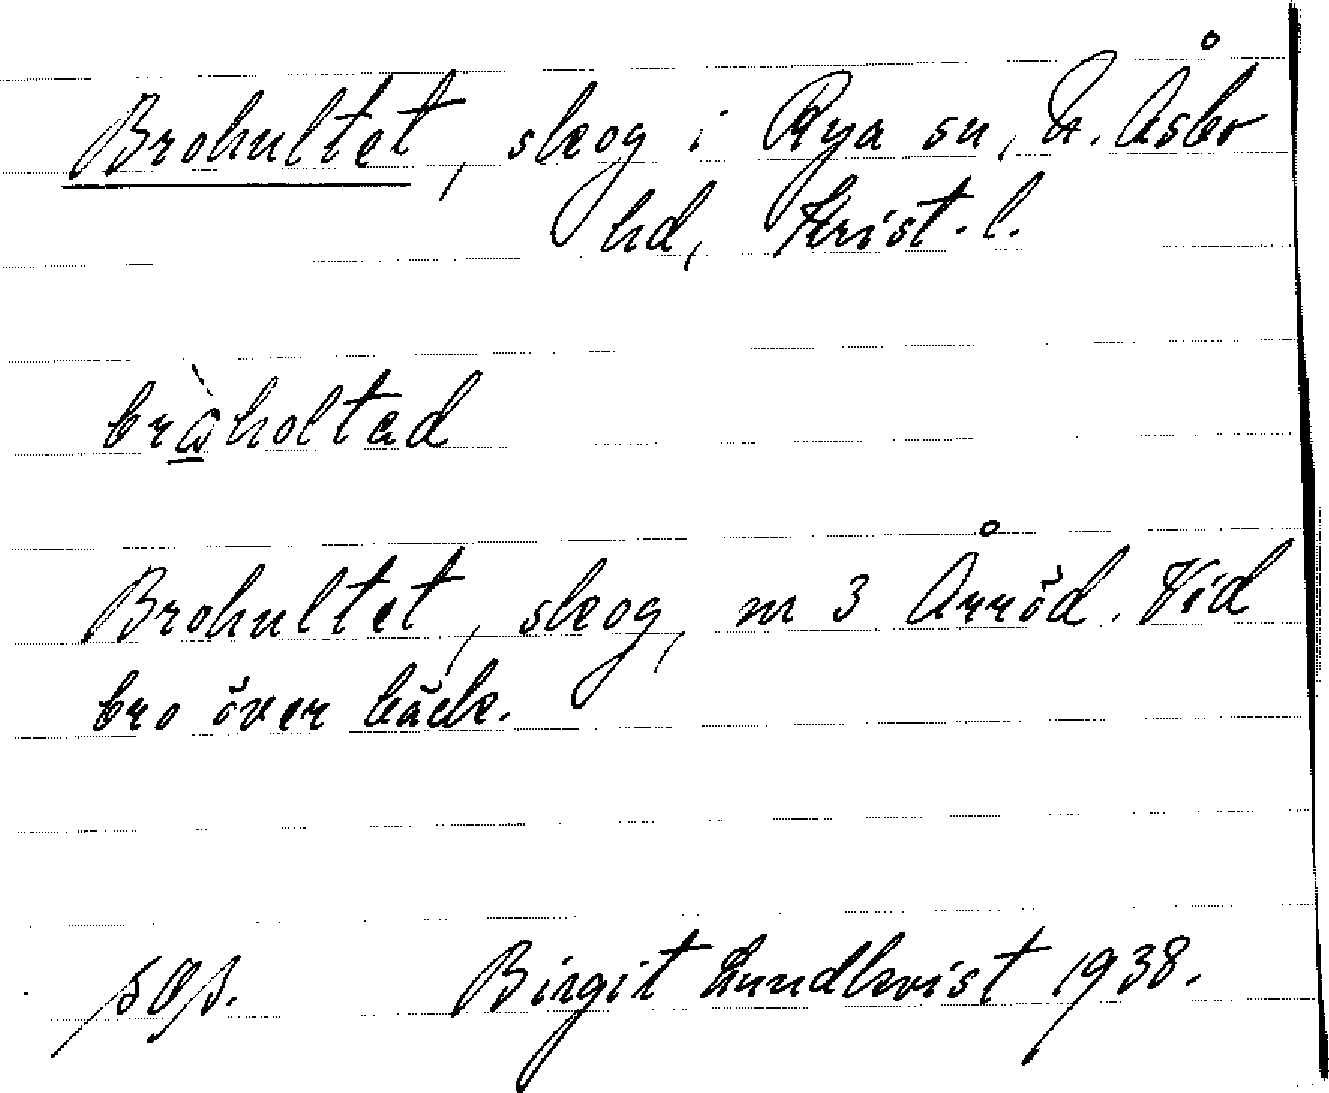 Brohultet, skog i Rya sn, N. Åsbo
hd, Krist. l.
bràholtad
Brohultet, skog, m 3 Årröd. Vid
bro över bäck.
Birgit Lundkvist 1938.